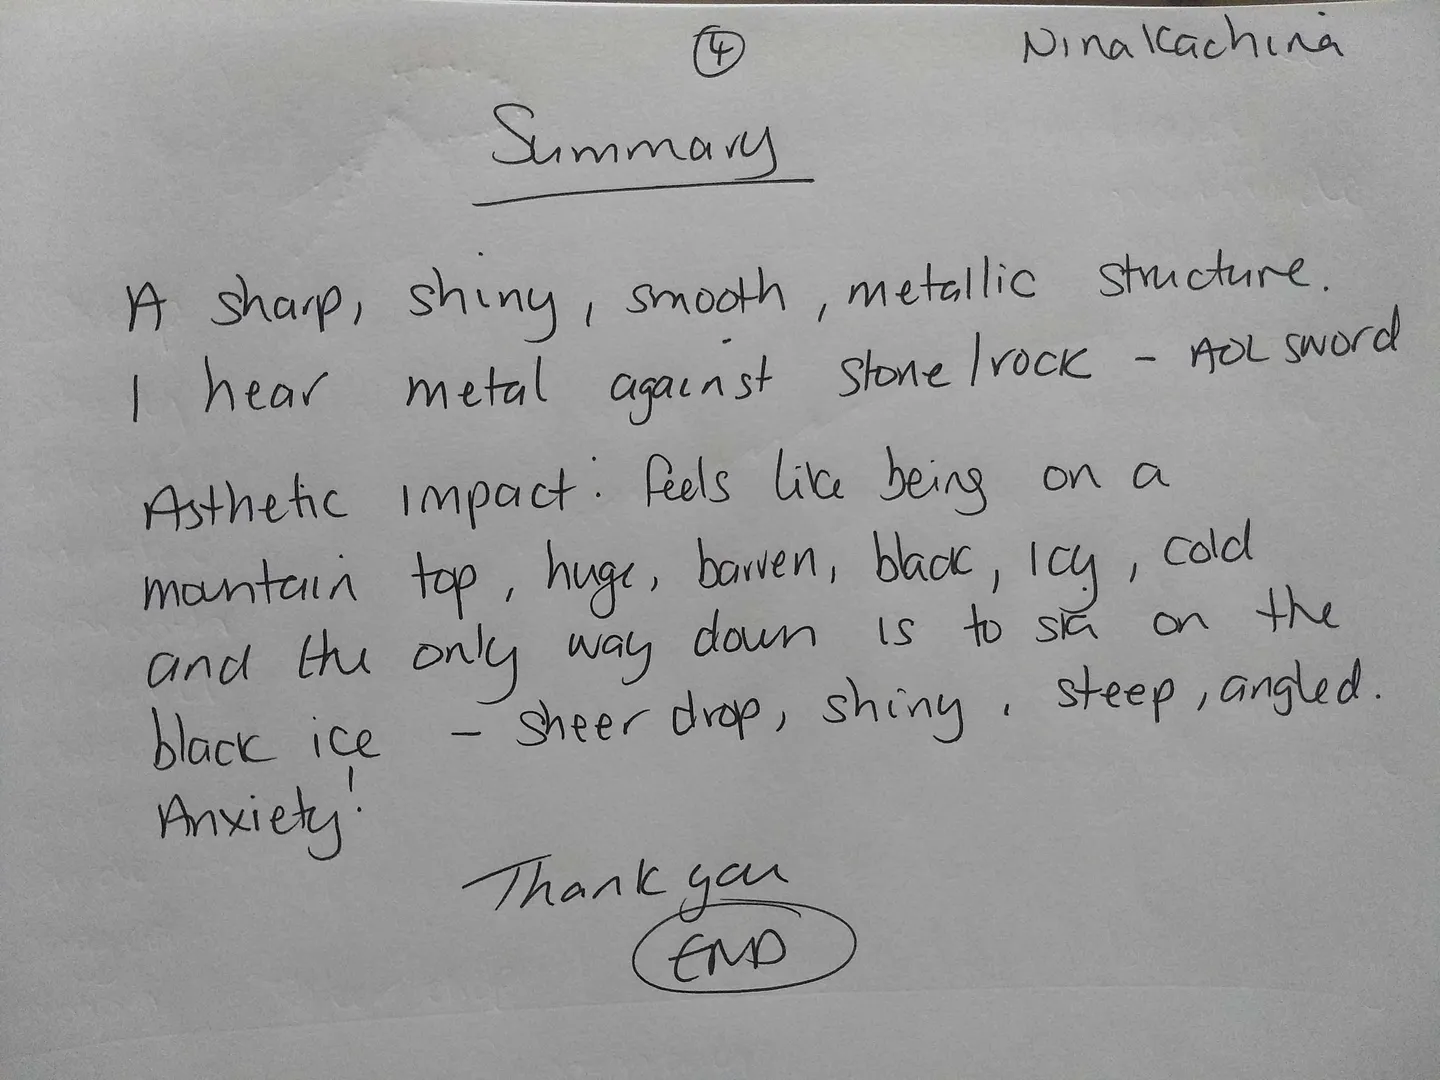 4
Ninakachina
Summary
A sharp, shiny, smooth, metallic structure.
I hear metal against stone/rock - AOL sword
Asthetic impact: feels like being on a
mountain top, huge, barren, black, icy, cold
and the only way down is to ski on the
black ice - sheer drop, shiny, steep, angled.
Anxiety!
Thank you
END